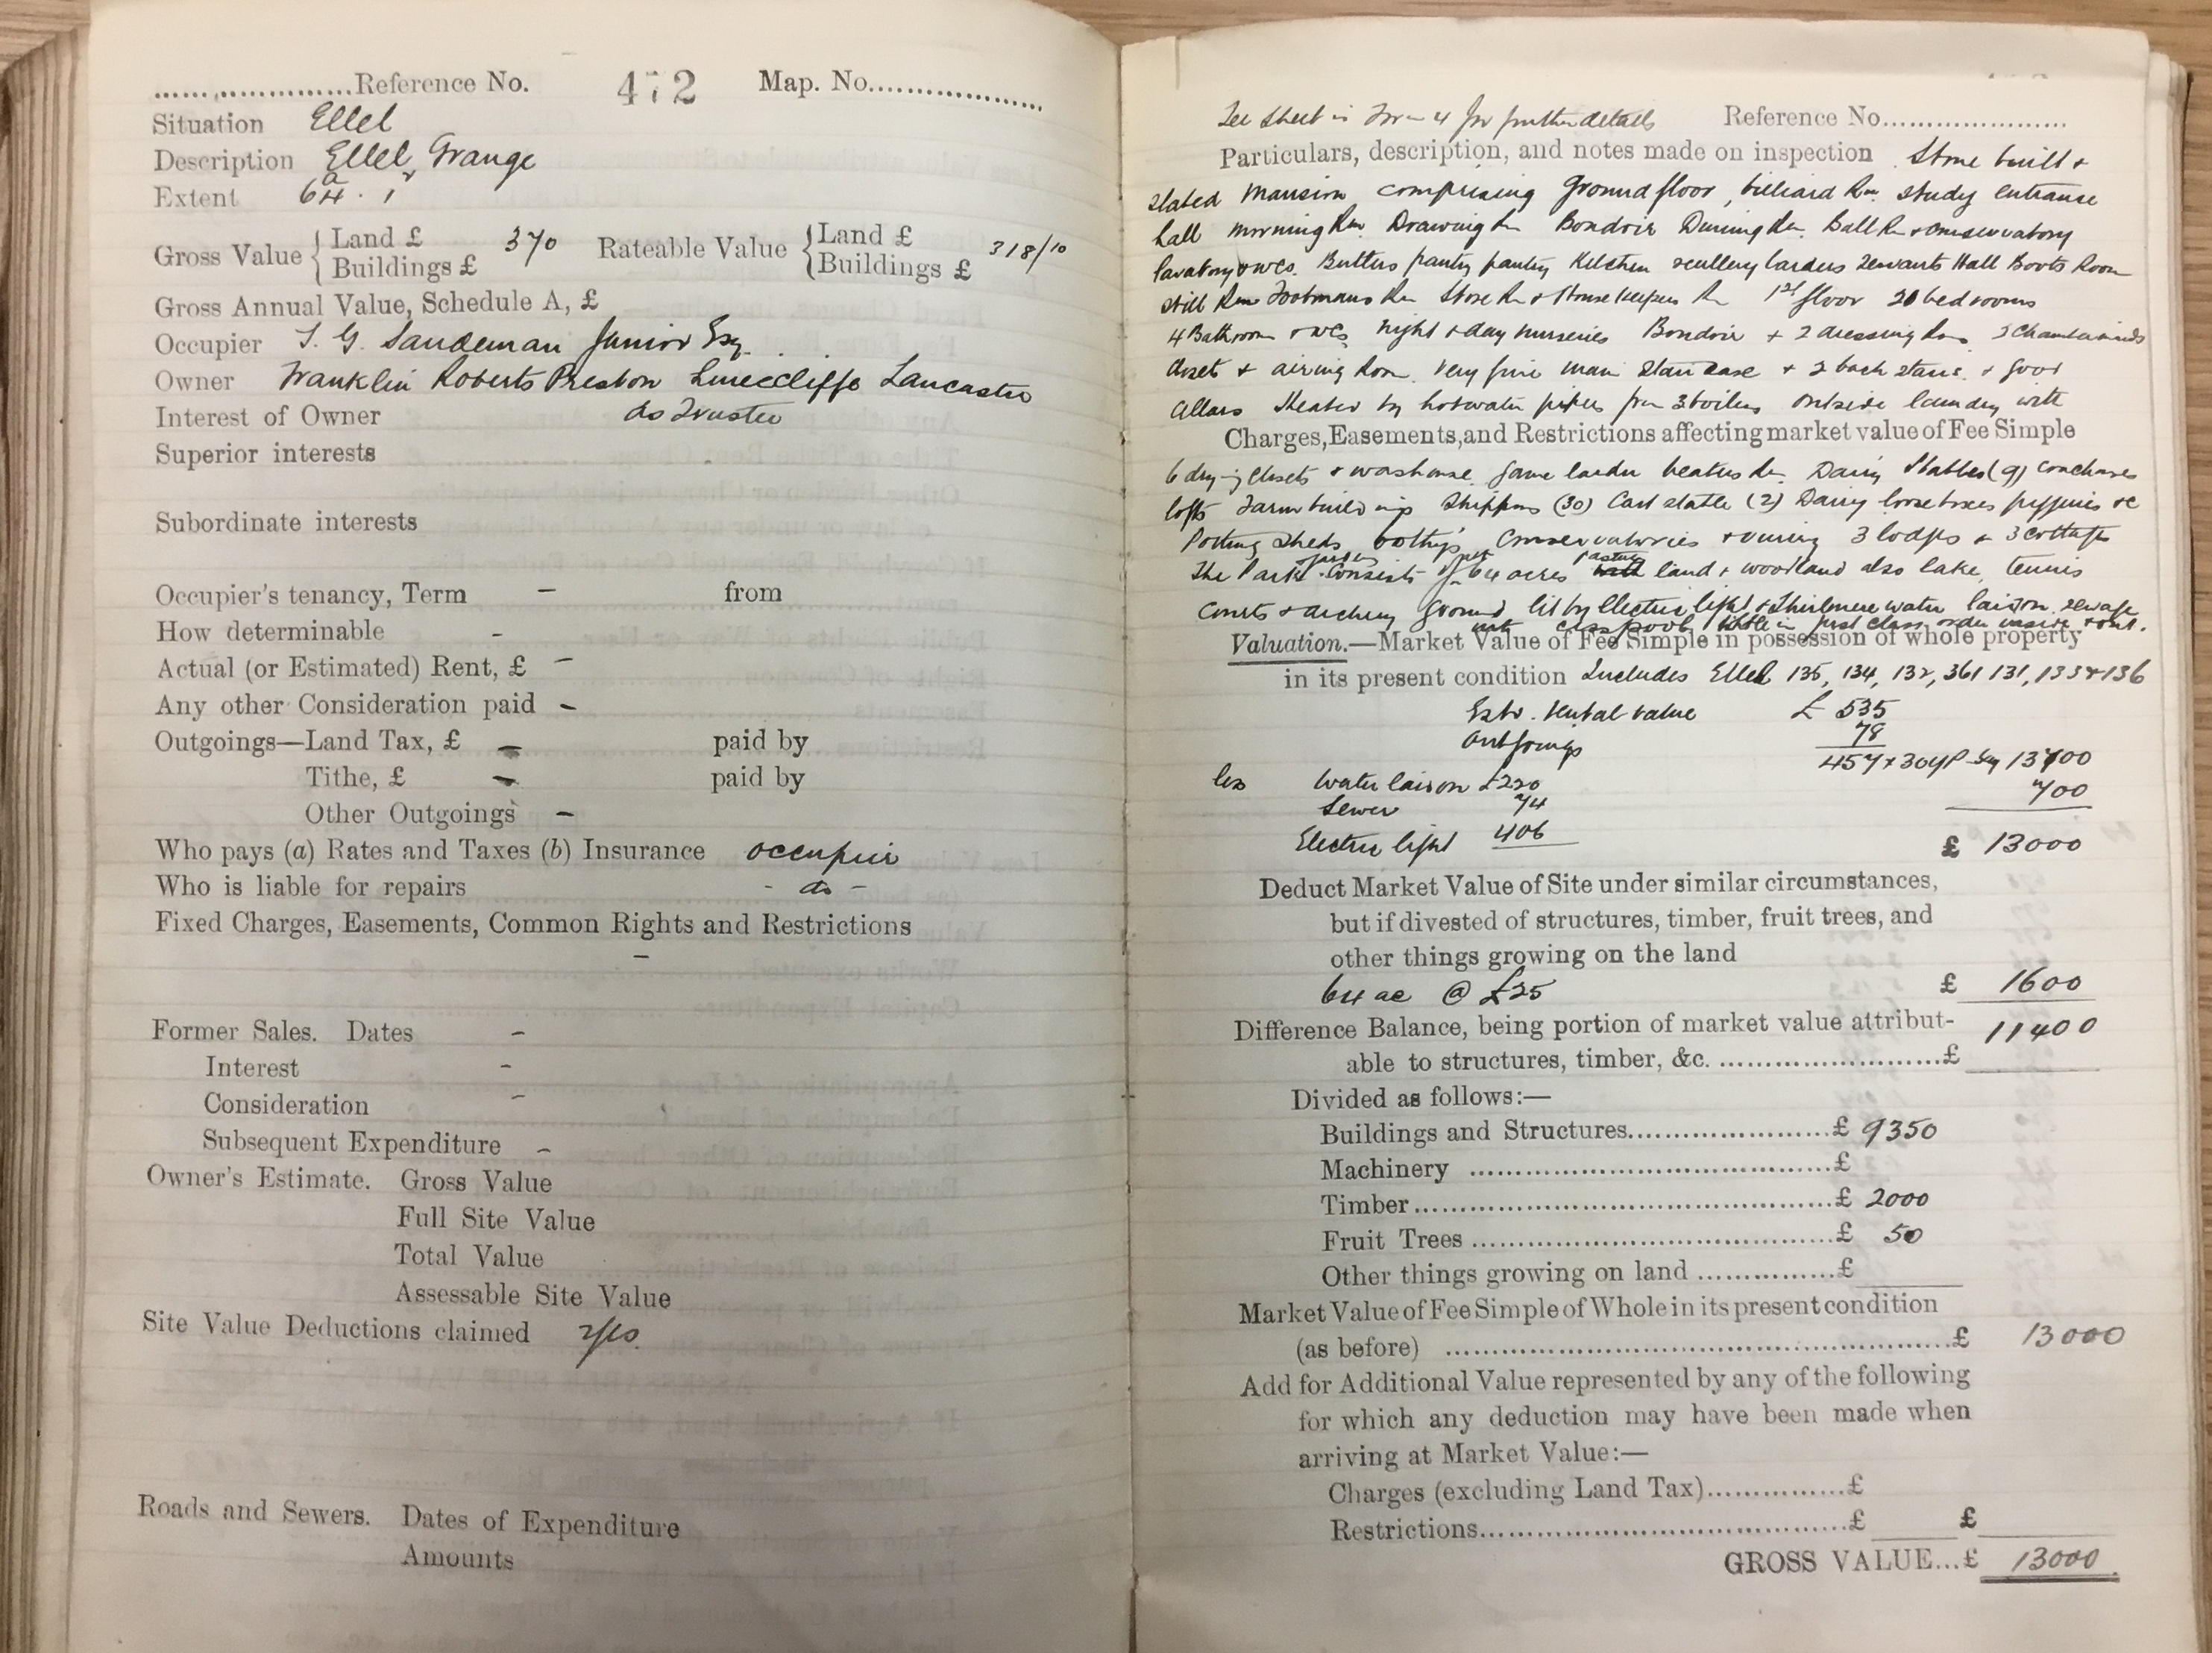 Reference No. 472 Map. No.
Situation Ellel
Description Ellel Grange
Extent 64a. 1r
Gross Value { Land £ Buildings £ 370 Rateable Value { Land £ Buildings £ 318/10
Gross Annual Value, Schedule A, £
Occupier T. G. Sandeman Junior Esq.
Owner Franklin Roberts Preston Lunecliffe Lancaster
Interest of Owner as Trustee
Superior interests
Subordinate interests
Occupier's tenancy, Term – from
How determinable -
Actual (or Estimated) Rent, £ –
Any other Consideration paid –
Outgoings—Land Tax, £ – paid by
Tithe, £ – paid by
Other Outgoings –
Who pays (a) Rates and Taxes (b) Insurance occupier
Who is liable for repairs - do -
Fixed Charges, Easements, Common Rights and Restrictions
–
Former Sales. Dates –
Interest -
Consideration -
Subsequent Expenditure -
Owner's Estimate. Gross Value
Full Site Value
Total Value
Assessable Site Value
Site Value Deductions claimed yes.
Roads and Sewers. Dates of Expenditure
Amounts
See sheet in Form 4 for further details Reference No.
Particulars, description, and notes made on inspection Stone built +
slated Mansion comprising Ground floor, billiard Rm. study entrance
hall morning Rm. Drawing Rm Boudoir Dining Rm. Ball Rm + conservatory
lavatory + wcs. Butlers pantry pantry Kitchen scullery larders Servants Hall Boots Room
still Rm Footmans Rm Store Rm + House keepers Rm 1st floor 20 bedrooms
4 Bathroom + wcs night + day nurseries Boudoir + 2 dressing Rms
closets + airing Room. Very fine main staircase + 2 back stairs. + good
cellars Heated by hotwater pipes from 3 boilers outside laundry with
Charges, Easements, and Restrictions affecting market value of Fee Simple
6 drying closets + washouse. Game larder beaters Rm. Dairy Stables (9)
lofts Farm buildings Shippons (30) Cart stable (2) Dairy loose boxes piggeries &c
Potting sheds bothys Conservatories + vinery 3 lodges + 3 cottages
The Park + gardens Consists of 64 acres pasture land + woodland also lake, tennis
courts + archery ground lit by Electric light + Thirlmere water laison. sewage
into cesspool whole in first class order inside + out.
Valuation.—Market Value of Fee Simple in possession of whole property
in its present condition Includes Ellel 135, 134, 132, 361 131, 133 + 136
Estd. rental value £ 535
Outgoings 78
457 x 30 yp say 13700
less Water laison £220 700
Sewer 74
Electric light 406 £ 13000
Deduct Market Value of Site under similar circumstances,
but if divested of structures, timber, fruit trees, and
other things growing on the land
64 ac @ £25 £ 1600
Difference Balance, being portion of market value attribut-
able to structures, timber, &c. £ 11400
Divided as follows:—
Buildings and Structures £ 9350
Machinery £
Timber £ 2000
Fruit Trees £ 50
Other things growing on land £
Market Value of Fee Simple of Whole in its present condition
(as before) £ 13000
Add for Additional Value represented by any of the following
for which any deduction may have been made when
arriving at Market Value:—
Charges (excluding Land Tax) £
Restrictions £ £
GROSS VALUE...£ 13000